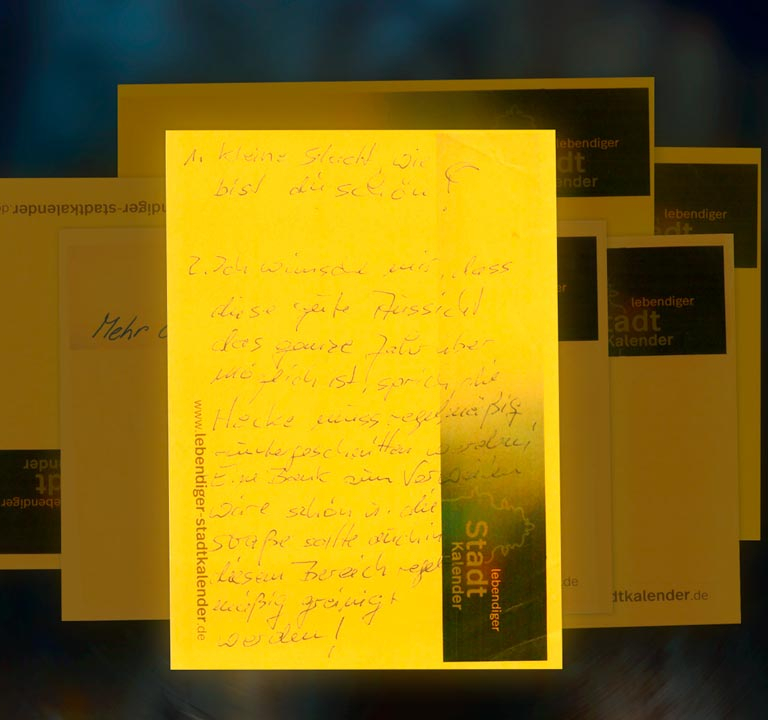 1. kleine Stadt, wie
bist du schön!
2. Ich wünsche mir, dass
diese gute Aussicht
das ganze Jahr über
möglich ist, sprich die
Hecke muss regelmäßig
runtergeschnitten werden!
Eine Bank zum Verweilen
wäre schön u. die
Straße sollte auch in
diesem Bereich regel
mäßig gereinigt
werden!
www.lebendiger-stadtkalender.de
lebendiger
Stadt
Kalender
Mehr
lebendiger
dt
ender
lebendiger
dt
lebendiger
tadt
Kalender
diger-stadtkalender.d
lebendiger
dt
ender
de
dtkalender.de